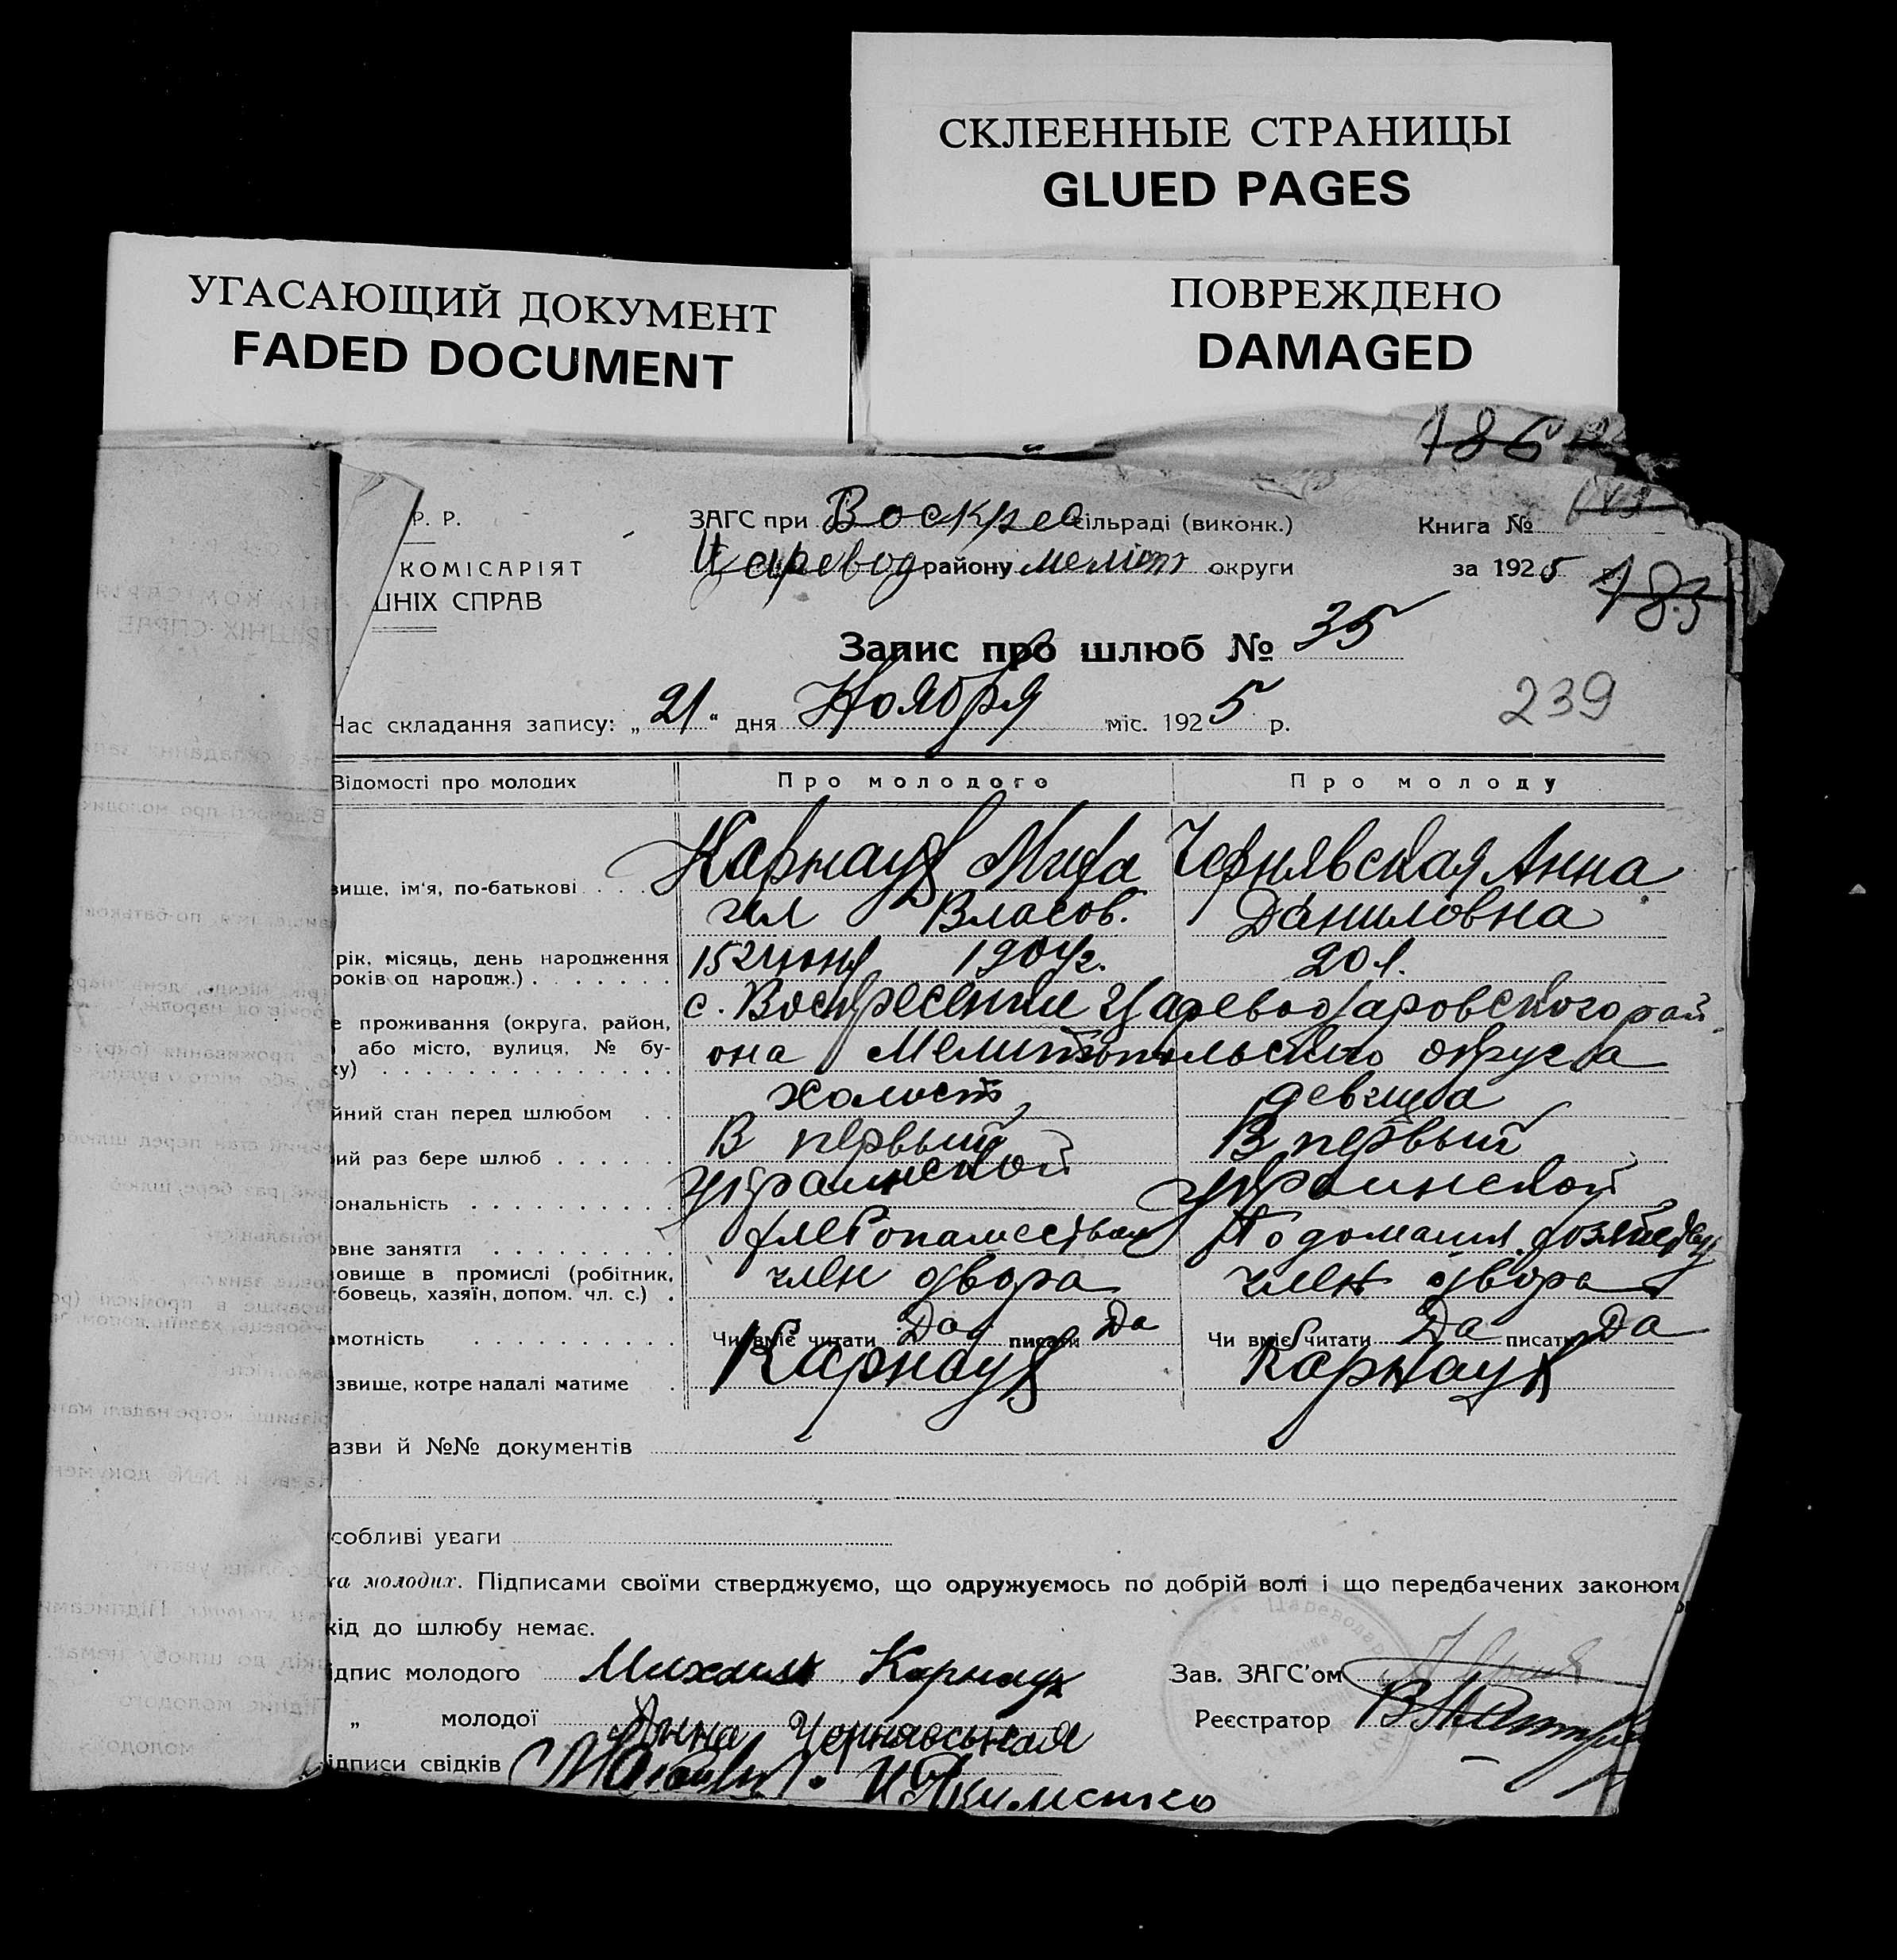 СКЛЕЕННЫЕ СТРАНИЦЫ
GLUED PAGES
УГАСАЮЩИЙ ДОКУМЕНТ
FADED DOCUMENT
ПОВРЕЖДЕНО
DAMAGED
186
Р. Р.
ЗАГС при Воскрес сільраді (виконк.)
Книга №
КОМІСАРІЯТ
Царевод району мелит округи
за 1925 р.
183
ШНІХ СПРАВ
Запис про шлюб № 35
239
Час складання запису: „21“ дня Ноября міс. 1925 р.
Відомості про молодих Про молодого Про молоду
вище, ім'я, по-батькові . . . Карнаух Миха Чернявская Анна
ил Власов. Даниловна
рік, місяць, день народження
років од народж.) . . . . . . . 15 июня 1904г. 20 л.
е проживання (округа, район, с. Воскресенки Цареводаровского рай
або місто, вулиця, № бу-
ку) . . . . . . . . . . . . . . . она Мелитопольского округа
йний стан перед шлюбом . . холост девица
ий раз бере шлюб . . . . . . В первый В первый
іональність . . . . . . . . . . украинской украинской
овне заняття . . . . . . . . . хлебопашеством По домашн. хозяйству
овище в промислі (робітник,
бовець, хазяїн, допом. чл. с.) . член двора член двора
амотність . . . . . . . . . . Чи вміє читати Да писати Да Чи вміє читати Да писати Да
звище, котре надалі матиме . Карнаух Карнаух
азви й №№ документів
собливі уваги
ка молодих. Підписами своїми стверджуємо, що одружуємось по добрій волі і що передбачених законом
кід до шлюбу немає.
ідпис молодого Михаил Карнаух Зав. ЗАГС'ом
„ молодої Анна Чернявская Реєстратор
ідписи свідків